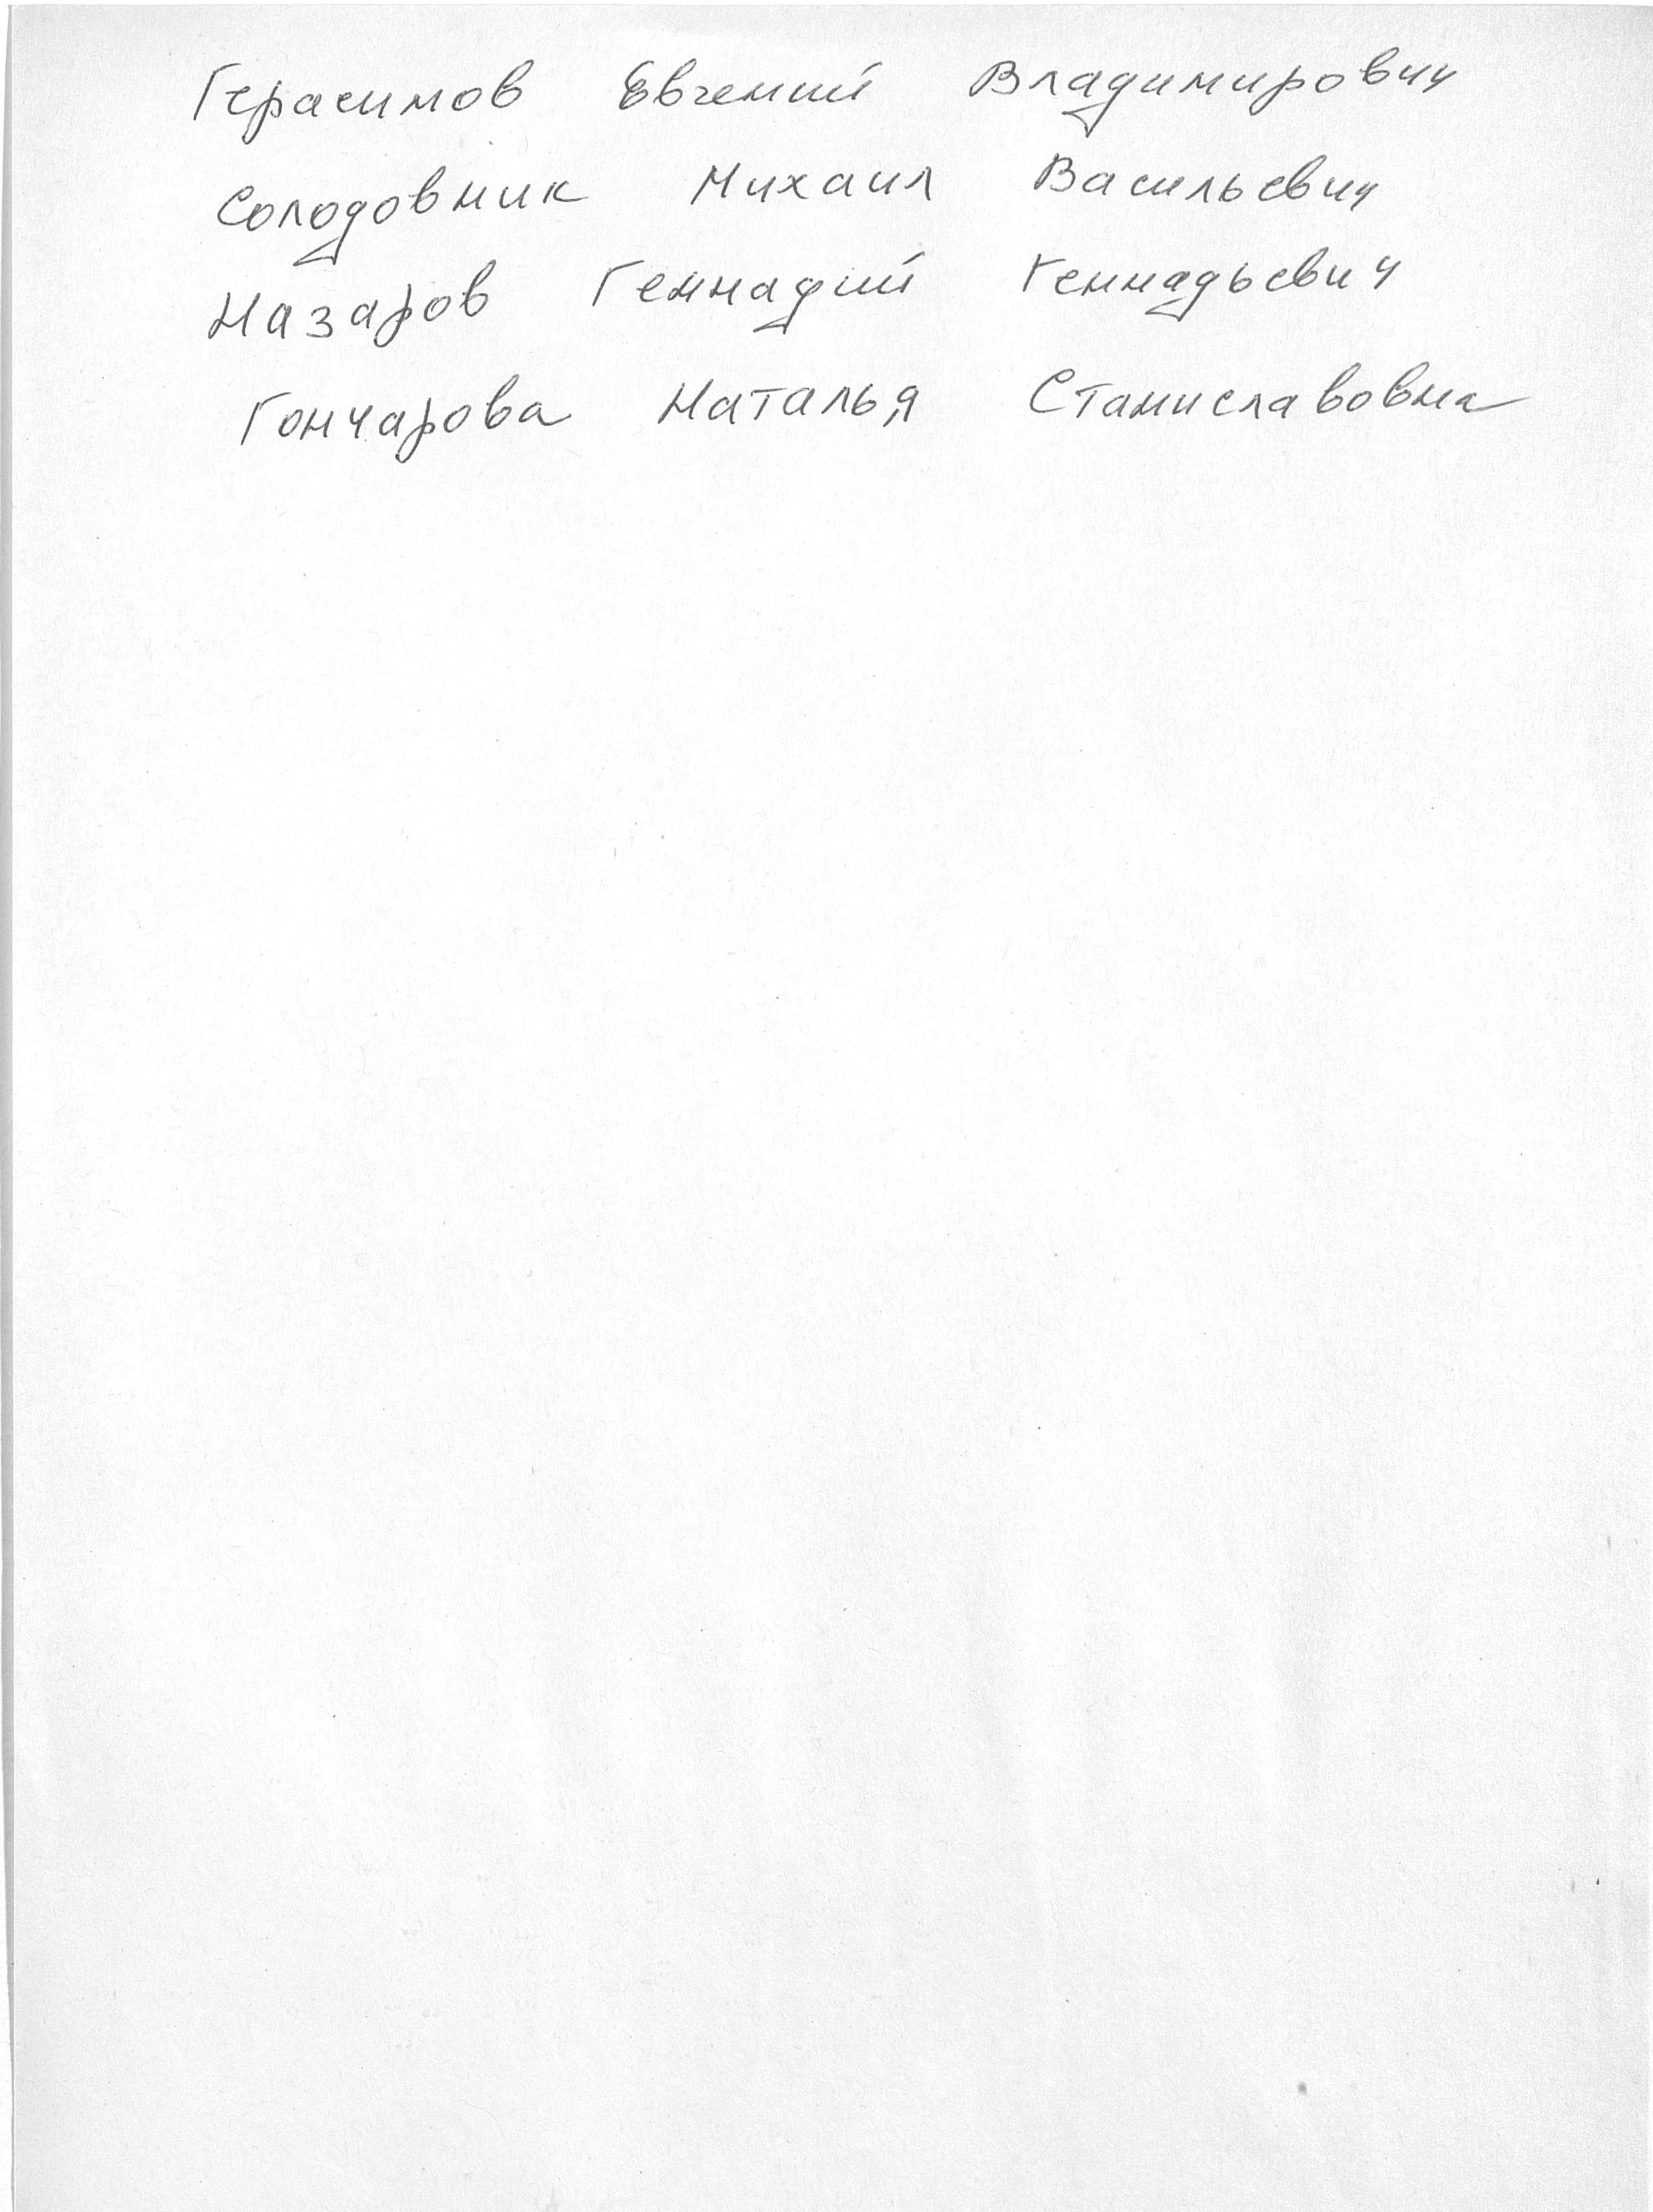 Герасимов Евгений Владимирович
Солодовник Михаил Васильевич
Назаров Геннадий Геннадьевич
Гончарова Наталья Станиславовна